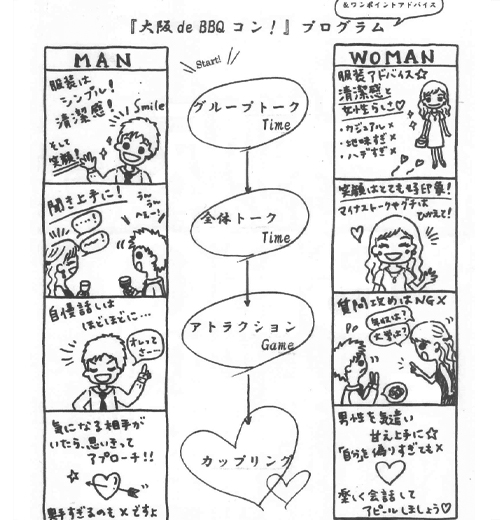 &ワンポイントアドバイス
『大阪 de BBQ コン！』プログラム
MAN
服装は
シンプル！
清潔感！
Smile
そして
笑顔！
聞き上手に！
……！
〜〜！
うん
うん
へぇ〜！
自慢話しは
ほどほどに…
オレって
さー…
気になる相手が
いたら、思いきって
アプローチ！！
奥手すぎるのも×ですよ
Start!
グループトーク
Time
全体トーク
Time
アトラクション
Game
カップリング
WOMAN
服装アドバイス☆
清潔感と
女性らしさ♡
・カジュアル×
・地味すぎ×
・ハデすぎ×
笑顔はとても好印象！
マイナストークやグチは
ひかえて！
質問ぜめはNG×
年収は？
大学は？
男性を気遣い
甘え上手に☆
「自分」を偽りすぎても×
楽しく会話して
アピールしましょう♡